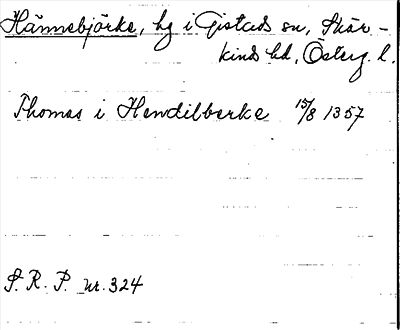 Hännebjörke, hg i Gistads sn, Skär-
kinds hd, Österg. l.
Thomas i Hendilberke 15/8 1357
S. R. P. nr. 324